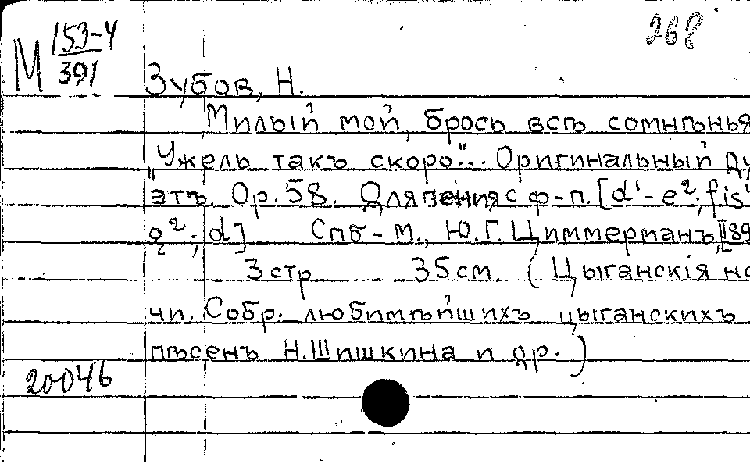 268
М 153-4
391
Зубов, Н.
Милый мой, брось всѣ сомнѣнья
"Ужель такъ скоро"... Оригинальный ду
этъ. Ор. 58. Для пения с ф-п. [d'-e²; fis'
g²; d] Спб-М., Ю.Г. Циммерманъ, [189
3 стр 35 см (Цыганскія но
чи. Собр. любимѣйшихъ цыганскихъ
пѣсенъ Н. Шишкина и др.)
20046